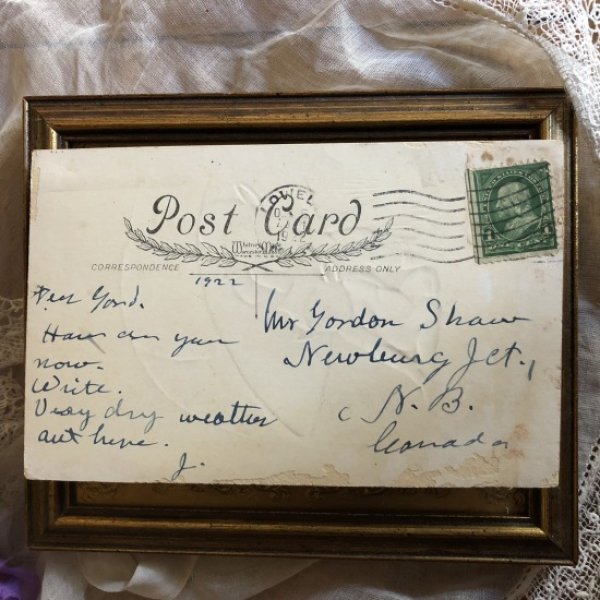 LOWELL
19
Post Card
Whitney Made
WORCESTER, MASS
CORRESPONDENCE
ADDRESS ONLY
1922
Dear Gord.
How are you
now.
Write.
Very dry weather
out here.
J.
Mr Gordon Shaw
Newburg Jct.,
N. B.
Canada